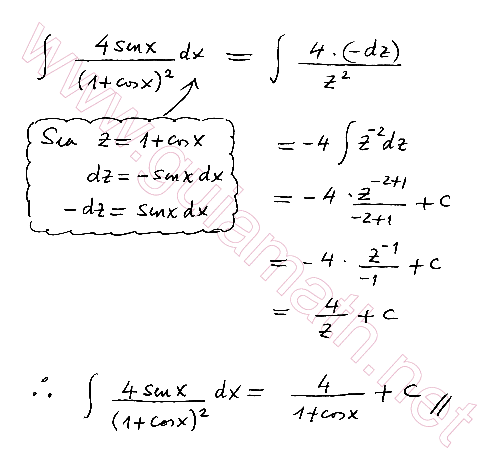 ∫ 4 sen x / (1+cos x)² dx = ∫ 4·(-dz) / z²
Sea z = 1+cos x
dz = -sen x dx
-dz = sen x dx
= -4 ∫ z⁻² dz
= -4 · z⁻²⁺¹ / -2+1 + C
= -4 · z⁻¹ / -1 + C
= 4 / z + C
∴ ∫ 4 sen x / (1+cos x)² dx = 4 / 1+cos x + C //
www.gulamath.net